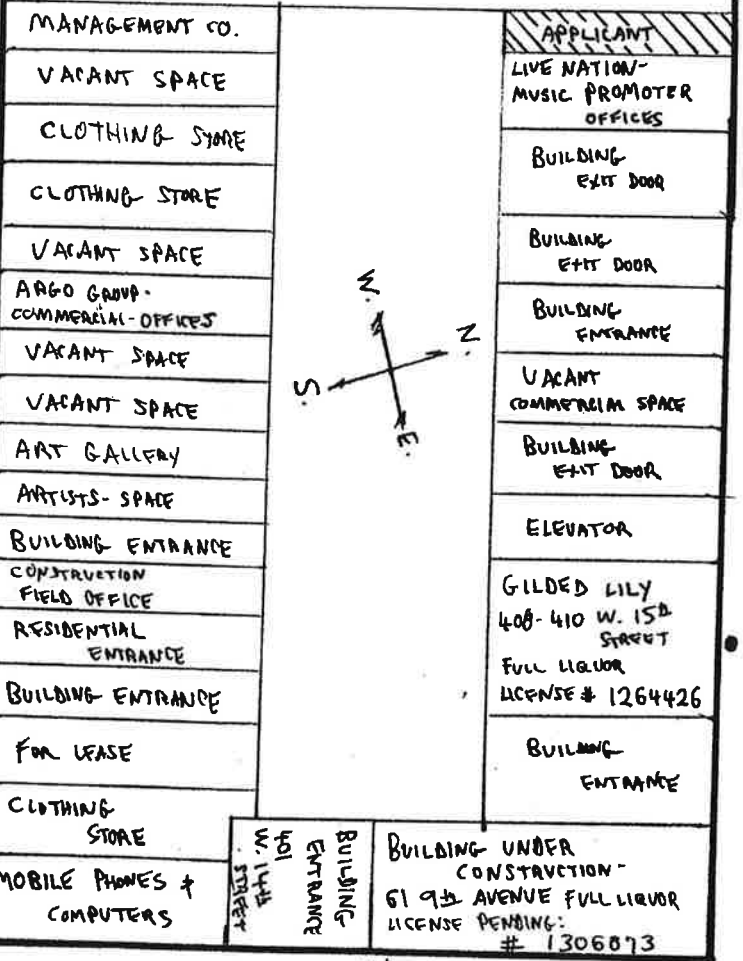 MANAGEMENT CO.
VACANT SPACE
CLOTHING STORE
CLOTHING STORE
VACANT SPACE
ARGO GROUP-
COMMERCIAL-OFFICES
VACANT SPACE
VACANT SPACE
ART GALLERY
ARTISTS-SPACE
BUILDING ENTRANCE
CONSTRUCTION
FIELD OFFICE
RESIDENTIAL
ENTRANCE
BUILDING ENTRANCE
FOR LEASE
CLOTHING
STORE
MOBILE PHONES &
COMPUTERS
W.
N.
S.
E.
APPLICANT
LIVE NATION-
MUSIC PROMOTER
OFFICES
BUILDING
EXIT DOOR
BUILDING
EXIT DOOR
BUILDING
ENTRANCE
VACANT
COMMERCIAL SPACE
BUILDING
EXIT DOOR
ELEVATOR
GILDED LILY
408-410 W. 15th
STREET
FULL LIQUOR
LICENSE # 1264426
BUILDING
ENTRANCE
BUILDING
ENTRANCE
401
W. 14th
STREET
BUILDING UNDER
CONSTRUCTION-
61 9th AVENUE FULL LIQUOR
LICENSE PENDING:
# 1306873